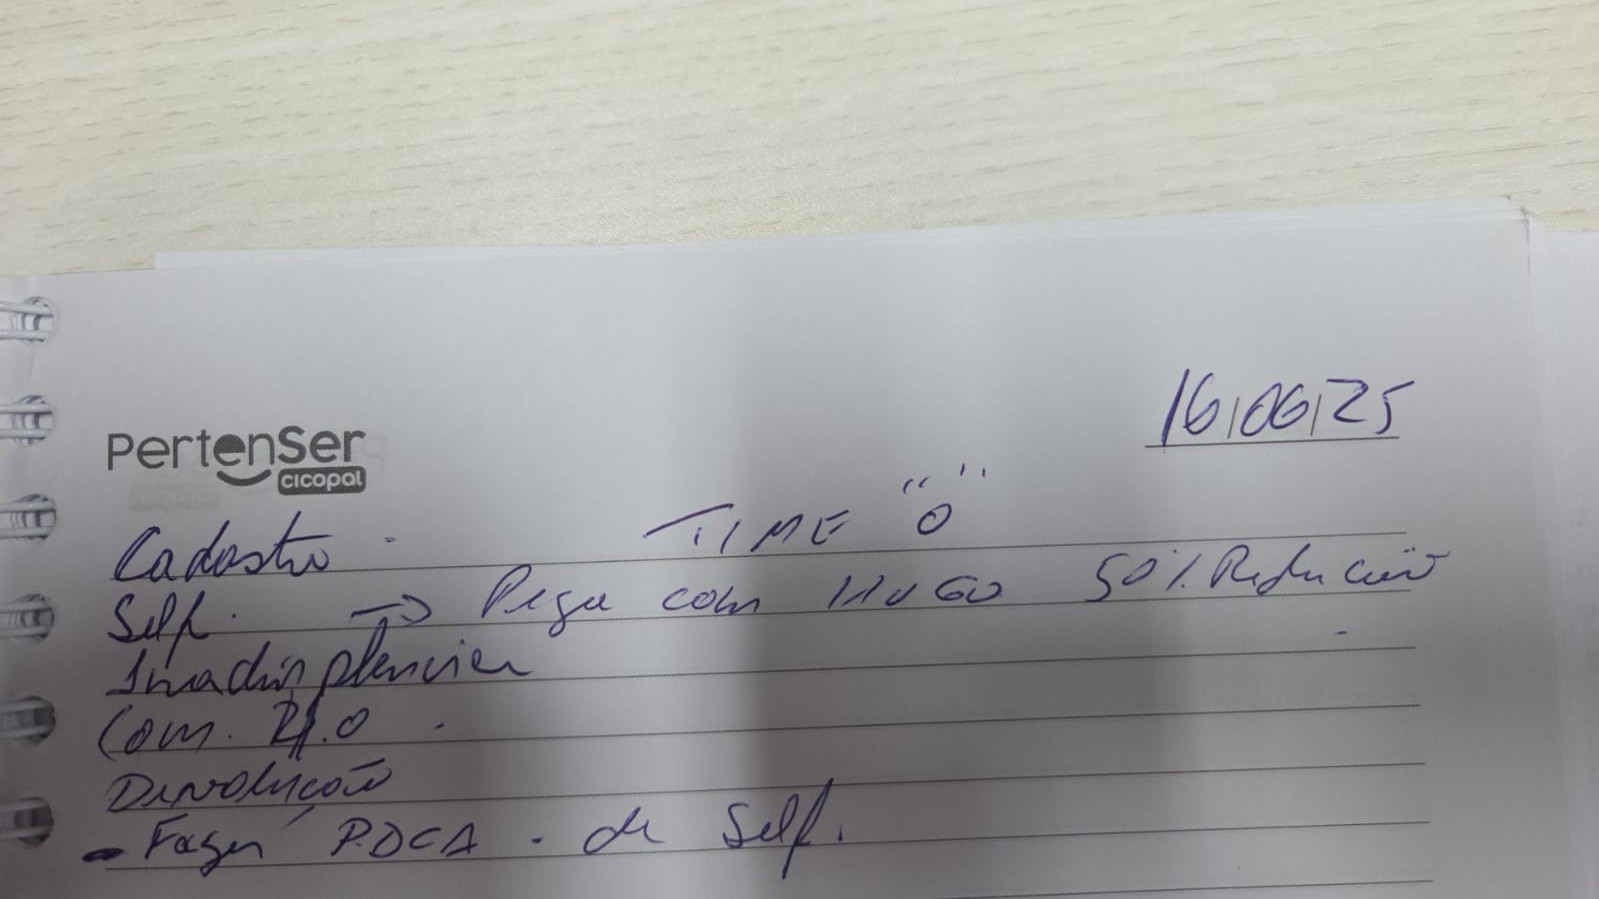 16/06/25
PertenSer
cicopal
TIME "O"
Cadastro.
Self. -> Pega com HUGO 50% Redução
Inadinplencia
Com. 2.0.
Devolução
- Fazer PDCA. de Self.